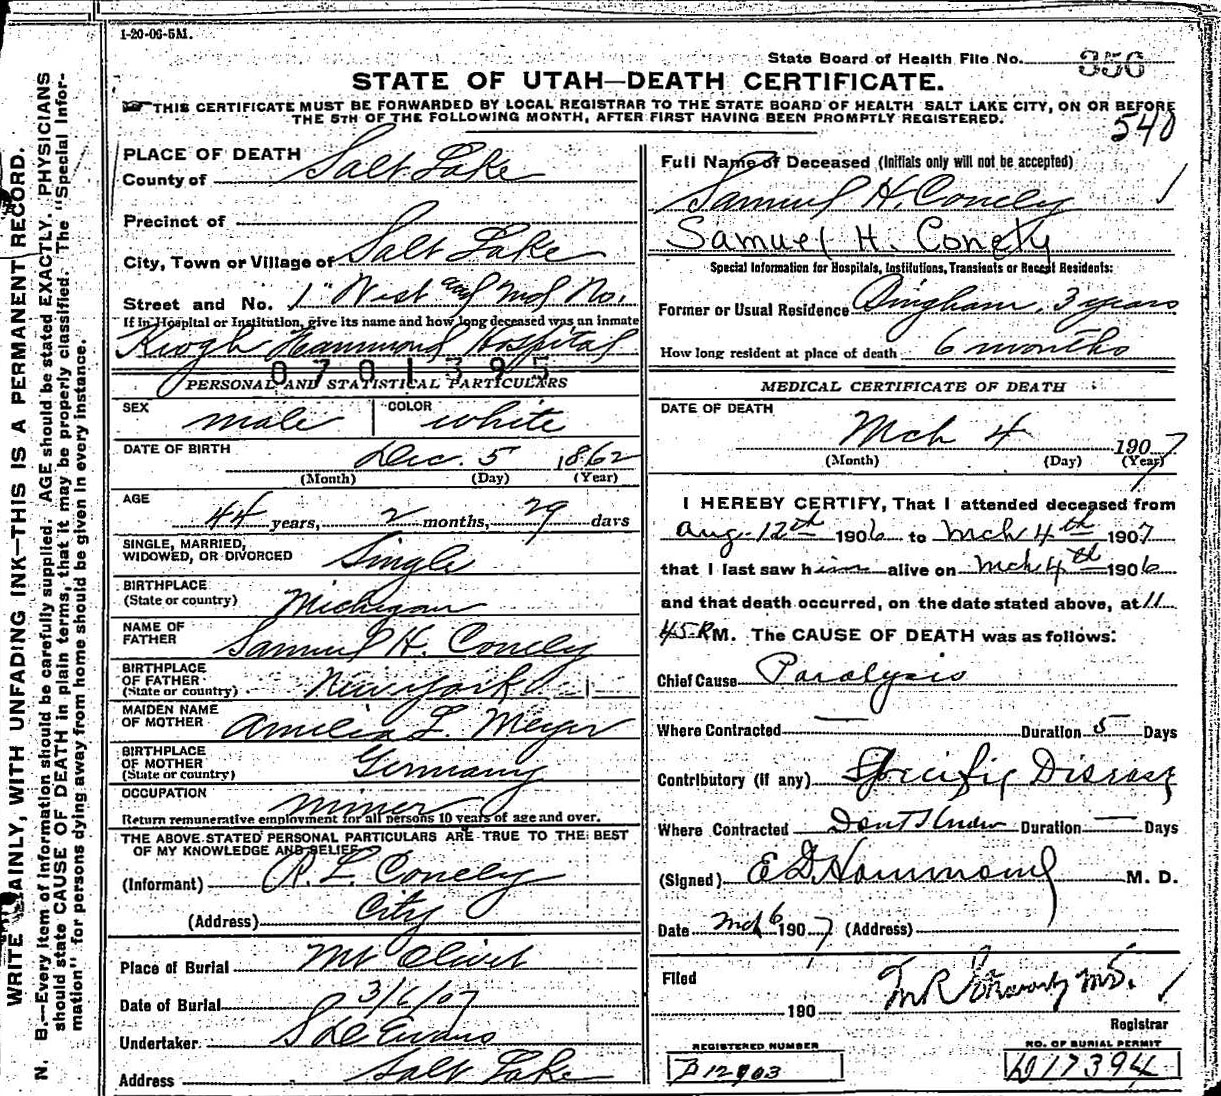 1-20-06-5M.
State Board of Health File No. 356
STATE OF UTAH—DEATH CERTIFICATE.
THIS CERTIFICATE MUST BE FORWARDED BY LOCAL REGISTRAR TO THE STATE BOARD OF HEALTH SALT LAKE CITY, ON OR BEFORE
THE 5TH OF THE FOLLOWING MONTH, AFTER FIRST HAVING BEEN PROMPTLY REGISTERED.
540
WRITE PLAINLY, WITH UNFADING INK—THIS IS A PERMANENT RECORD.
N. B.—Every item of information should be carefully supplied. AGE should be stated EXACTLY. PHYSICIANS
should state CAUSE OF DEATH in plain terms, that it may be properly classified. The "Special Infor-
mation" for persons dying away from home should be given in every instance.
PLACE OF DEATH
County of Salt Lake
Precinct of
City, Town or Village of Salt Lake
Street and No. 1st West and No.
If in Hospital or Institution, give its name and how long deceased was an inmate
Keogh Hammond Hospital
0701395
PERSONAL AND STATISTICAL PARTICULARS
SEX male COLOR white
DATE OF BIRTH Dec. 5 1862
(Month) (Day) (Year)
AGE
44 years, 2 months, 29 days
SINGLE, MARRIED,
WIDOWED, OR DIVORCED Single
BIRTHPLACE
(State or country) Michigan
NAME OF
FATHER Samuel H. Conely
BIRTHPLACE
OF FATHER
(State or country) New York
MAIDEN NAME
OF MOTHER Amelia L. Meyer
BIRTHPLACE
OF MOTHER
(State or country) Germany
OCCUPATION miner
Return remunerative employment for all persons 10 years of age and over.
THE ABOVE STATED PERSONAL PARTICULARS ARE TRUE TO THE BEST
OF MY KNOWLEDGE AND BELIEF
(Informant) R. L. Conely
(Address) City
Place of Burial Mt Olivet
Date of Burial 3/6/07
Undertaker S D Evans
Address Salt Lake
Full Name of Deceased (Initials only will not be accepted)
Samuel H. Conely
Samuel H. Conely
Special Information for Hospitals, Institutions, Transients or Recent Residents:
Former or Usual Residence Bingham. 3 years
How long resident at place of death 6 months
MEDICAL CERTIFICATE OF DEATH
DATE OF DEATH
Mch 4 1907
(Month) (Day) (Year)
I HEREBY CERTIFY, That I attended deceased from
Aug. 12th 1906 to Mch 4th 1907
that I last saw him alive on Mch 4th 1906
and that death occurred, on the date stated above, at 11
45 P.M. The CAUSE OF DEATH was as follows:
Chief Cause Paralysis
Where Contracted — Duration 5 Days
Contributory (if any) Specific Disease
Where Contracted Dont Know Duration — Days
(Signed) E D. Hammond M. D.
Date Mch 6 1907 (Address)
Filed
190 M.D.
Registrar
REGISTERED NUMBER
B 12903
NO. OF BURIAL PERMIT
D17394